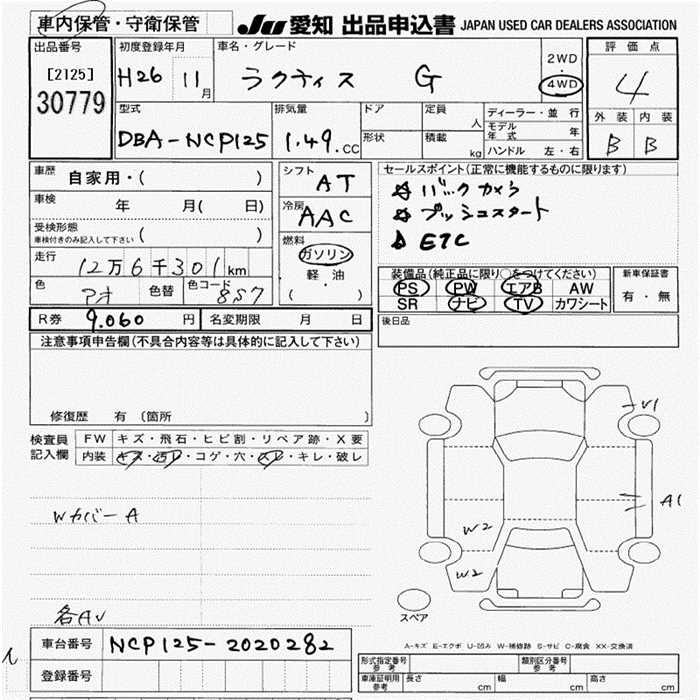 車内保管・守衛保管
JU 愛知 出品申込書 JAPAN USED CAR DEALERS ASSOCIATION
出品番号
[2125]
30779
初度登録年月
H26 11月
車名・グレード
ラクティス G
2WD
・
4WD
評価点
4
外装 内装
B B
型式
DBA-NCP125
排気量
1.49.cc
ドア
形状
定員 人
積載 kg
ディーラー・並行
モデル年式 年
ハンドル 左・右
車歴 自家用・( )
車検 年 月( 日)
受検形態
車検付きのみ記入して下さい ( )
走行 12万6千301km
色 アオ 色替 色コード 8S7
シフト AT
冷房 AAC
燃料
ガソリン
軽・油
( )
セールスポイント(正常に機能するものに限ります)
☆ バックカメラ
☆ プッシュスタート
ETC
装備品(純正品に限り○をつけてください)
PS PW エアB AW
SR ナビ TV カワシート
新車保証書
有・無
後日品
R券 9.060 円 名変期限 月 日
注意事項申告欄(不具合内容等は具体的に記入して下さい)
修復歴 有 〔箇所 〕
検査員記入欄
FW キズ・飛石・ヒビ割・リペア跡・X要
内装 キズ・汚レ・コゲ・穴・スレ・キレ・破レ
WカバーA
各AU
V1
A1
W2
W2
スペア
A-キズ E-エクボ U-凹み W-補修跡 S-サビ C-腐食 XX-交換済
車台番号 NCP125-2020282
登録番号
型式指定番号 参考
類別区分番号 参考
車庫証明用 参考 長さ cm 幅 cm 高さ cm